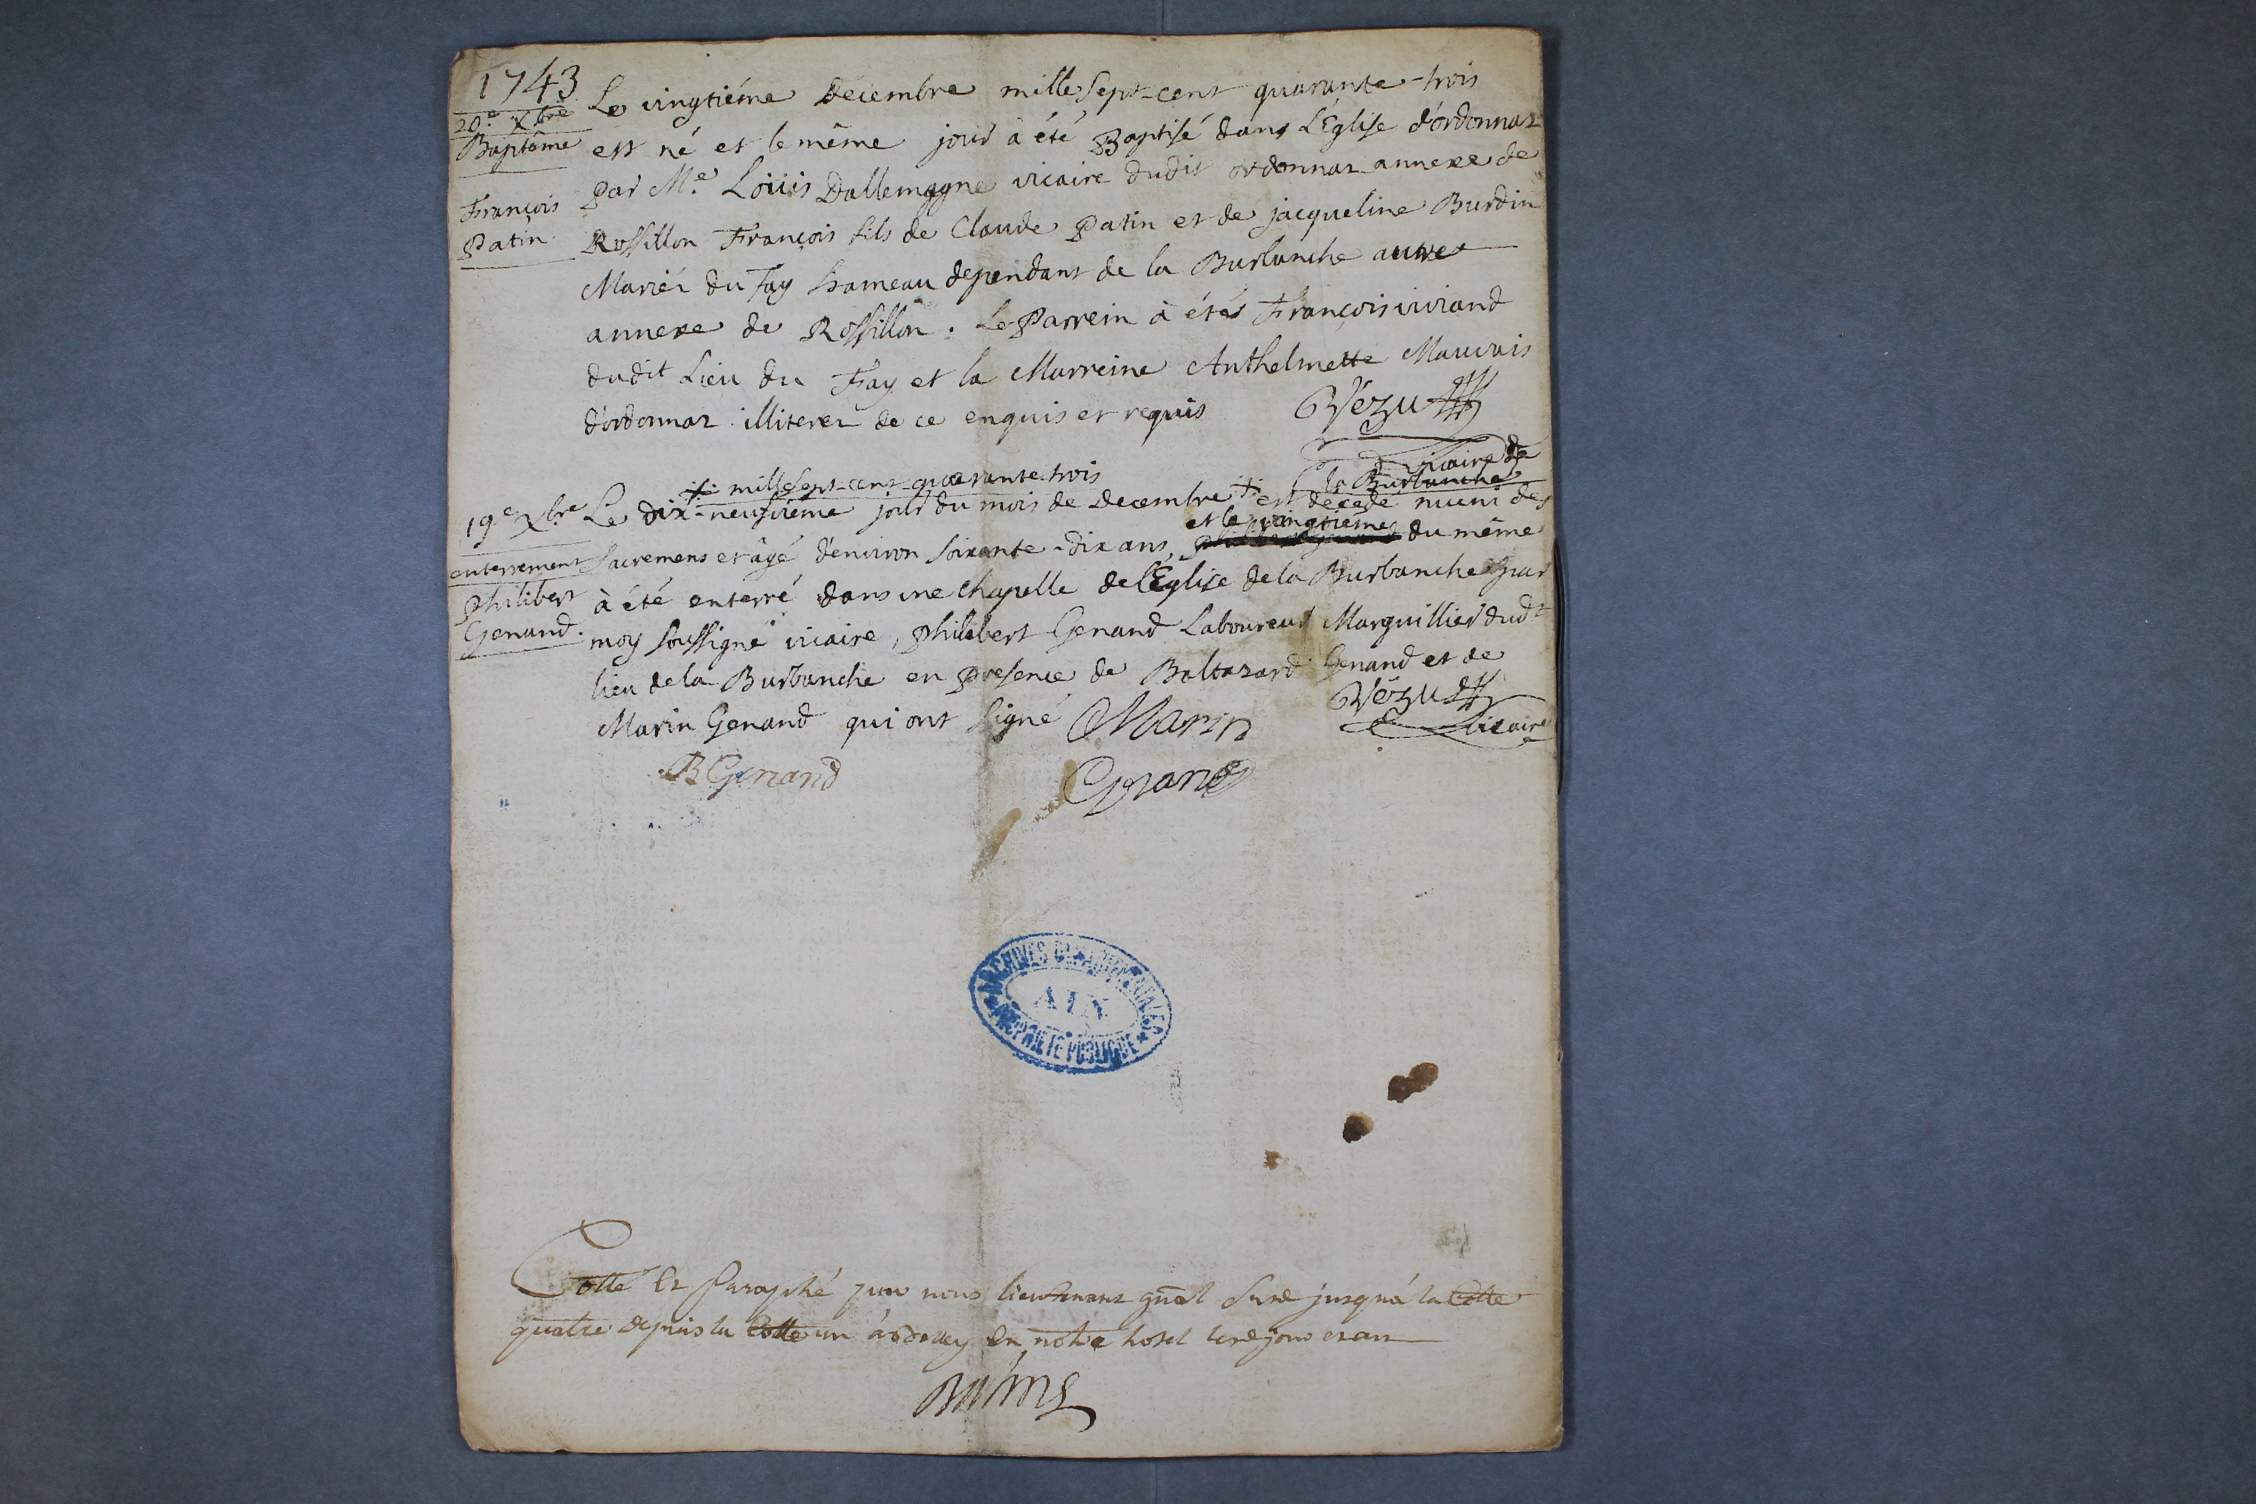 1743
20.e Xbre
Baptême
François
Patin
Le vingtiéme decembre mille Sept-cent quarante-trois
est né et le même jour à été Baptisé dans L'Église d'ordonnaz
par M.e Loüis Dallemagne vicaire dudit ordonnaz annexe de
Rossillon François fils de Claude Patin et de jacqueline Burdin
Mariés du Fay hameau dependant de la Burbanche autre
annexe de Rossillon. Le Parrein à étés François viviand
dudit Lieu du Fay et la Marreine Anthelmette Mauvais
d'ordonnaz illiterez de ce enquis et requis Vézu
vicaire de
la Burbanche
19.e Xbre
enterrement
Philibert
Genand.
mille Sept-cent-quarante-trois
Le dix-neufvieme jour du mois de decembre + est decedé muni des
et le vingtiéme
Sacremens et âgé d'environ Soixante-dix ans, du même
à été enterré dans une Chapelle de l'Église de la Burbanche par
moy Soussigné vicaire, Philibert Genand Laboureur Marguillier dudt
lieu de la Burbanche en Presence de Baltazard Genand et de
Marin Genand qui ont Signé Marin Vézu
vicaire
B Genand Genand
ARCHIVES DEPARTEMENTALES
AIN
PROPRIETE PUBLIQUE
Cotté Et Paraphé par nous lieutenant gnāl jusqu'à la Cotte
quatre depuis la Cotte un en notre hotel jour et an